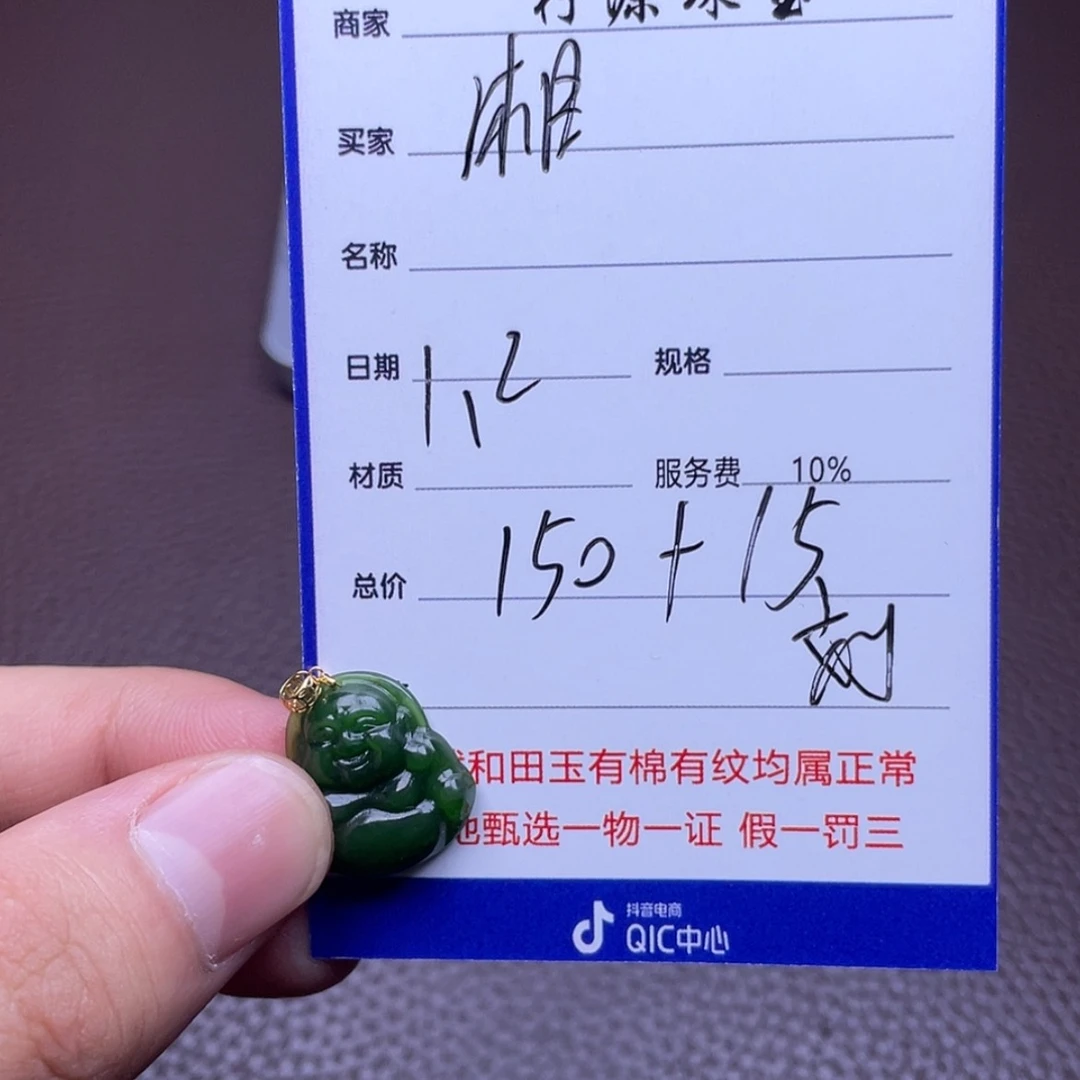 商家
买家 湘
名称
日期 1、2 规格
材质 服务费 10%
总价 150+15
和田玉有棉有纹均属正常
甄选一物一证 假一罚三
抖音电商
QIC中心